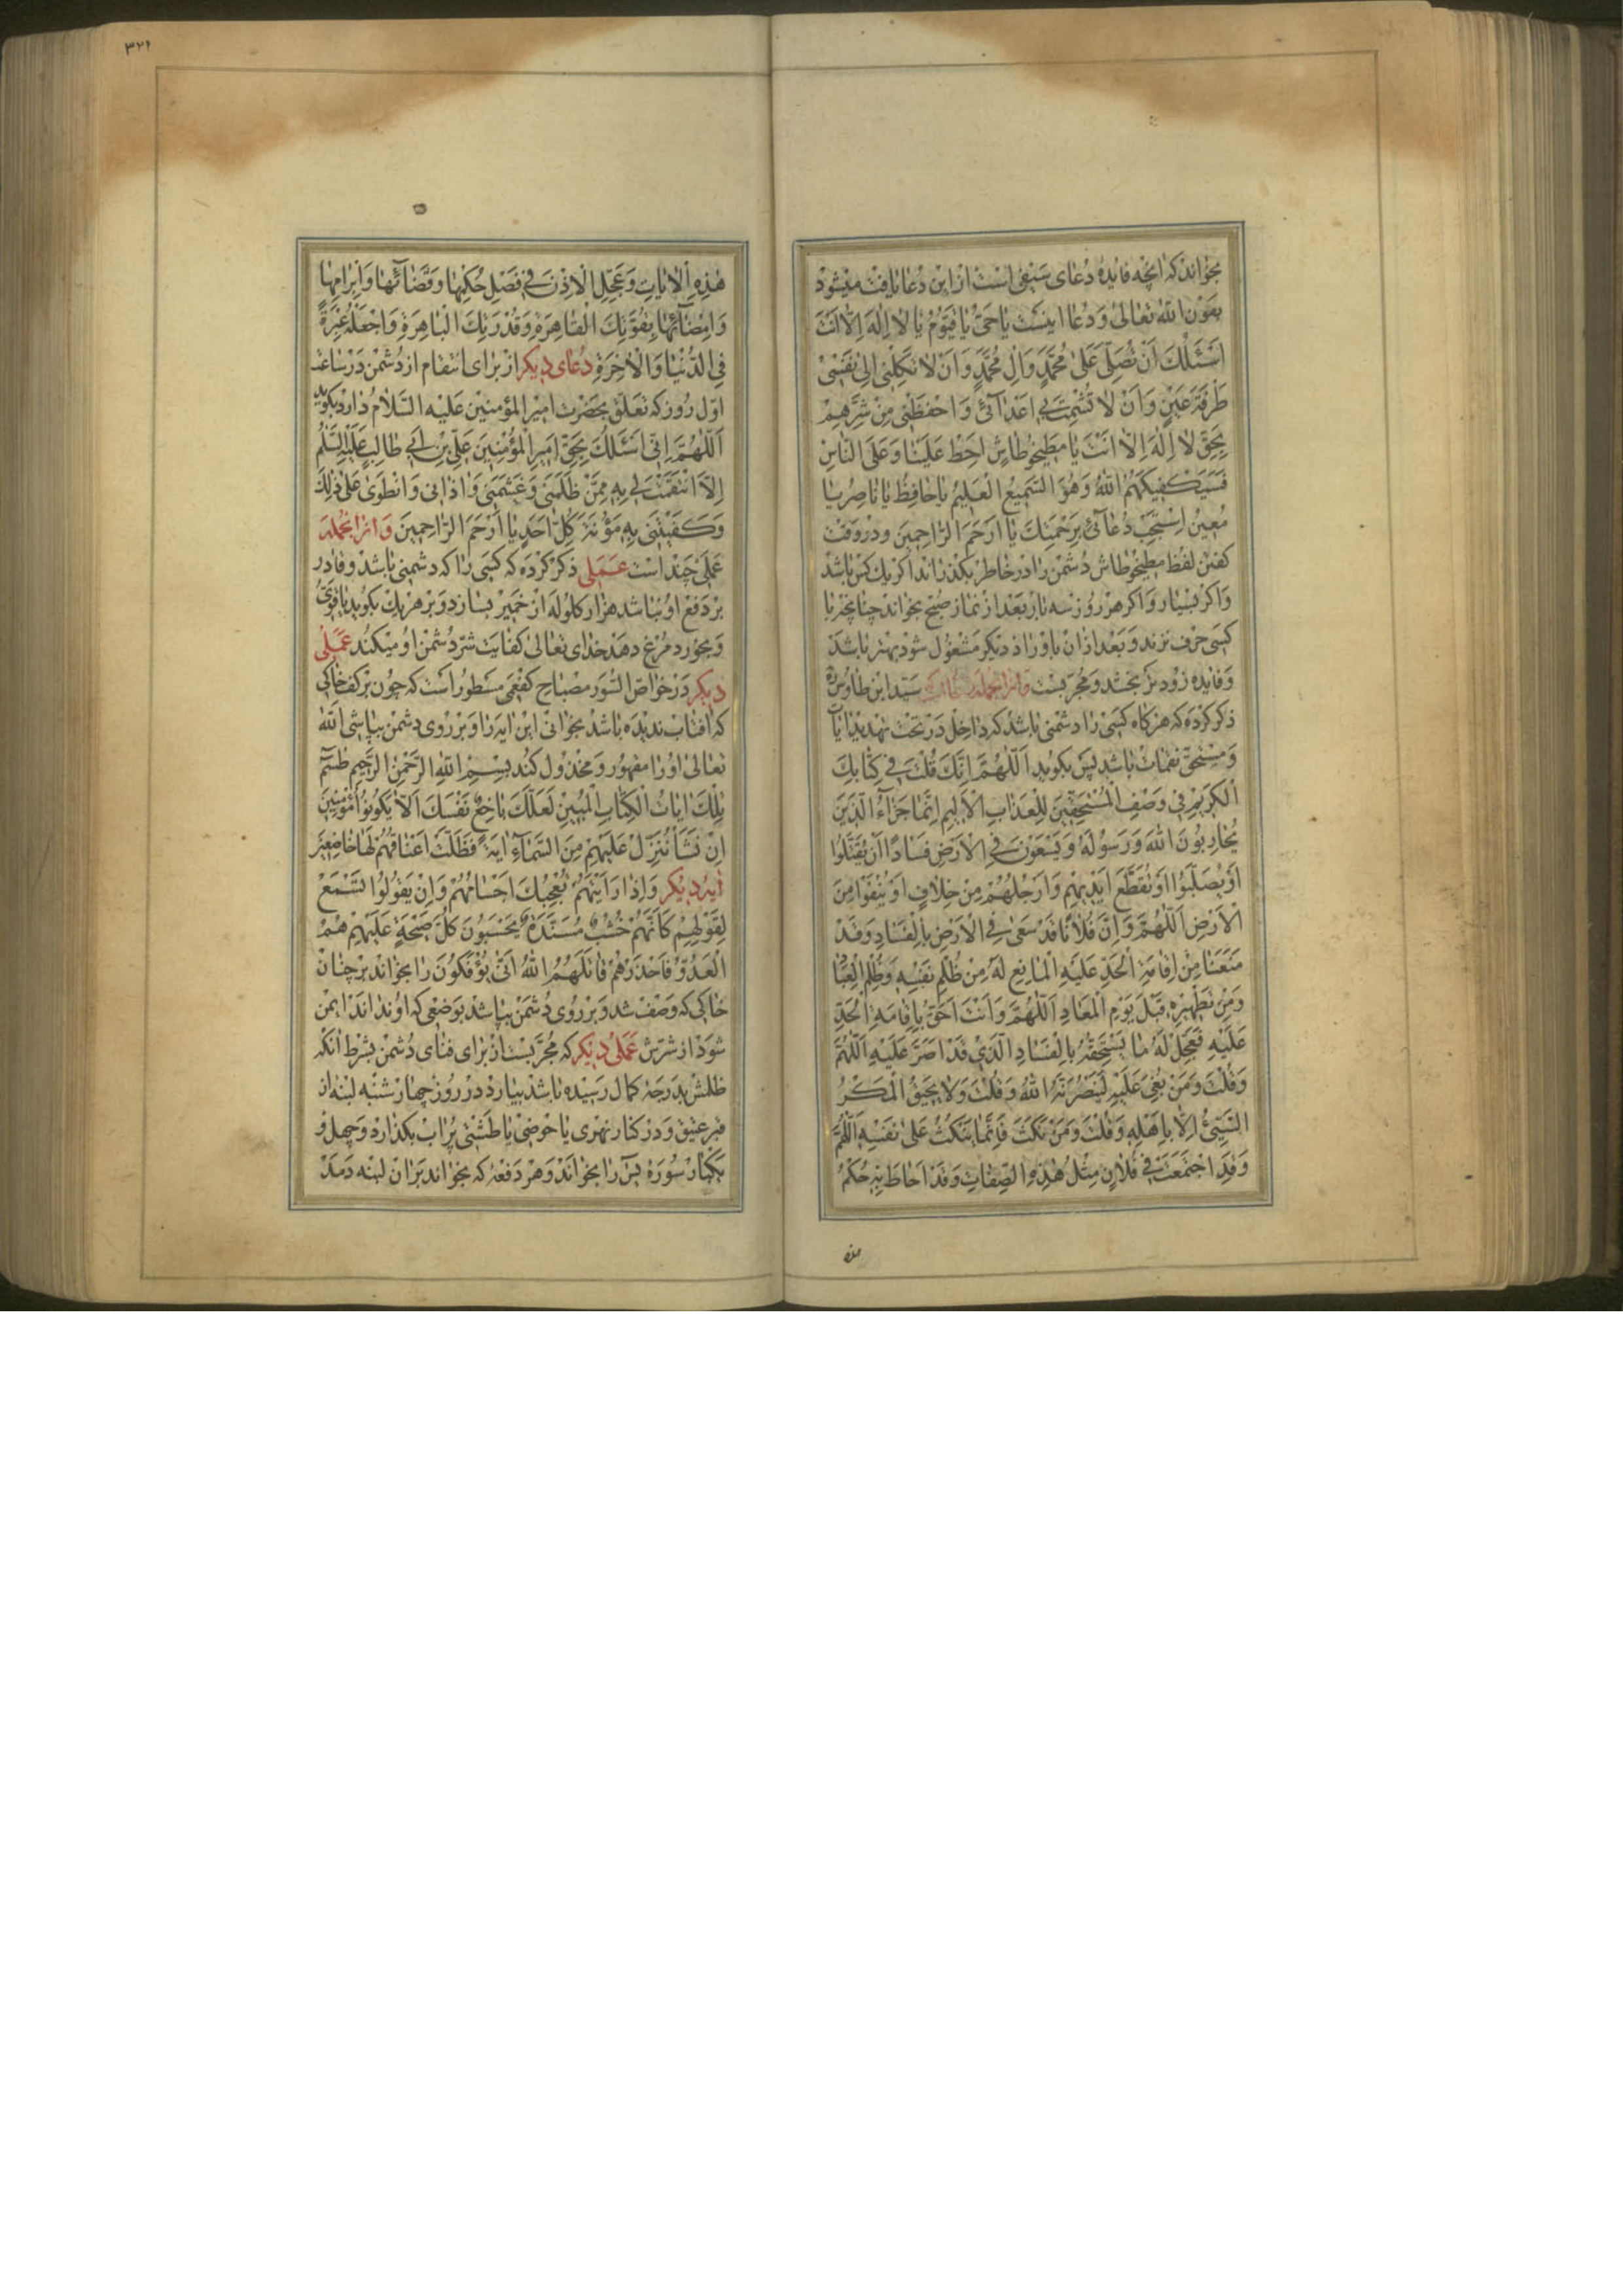 بخواند که آنچه فایدهٔ دعای سیفی است از این دعا یافت میشود
بعون الله تعالی و دعا اینست یا حَیُّ یا قَیُّومُ یا لا اِلهَ اِلّا اَنْتَ
اَسْئَلُكَ اَنْ تُصَلِّیَ عَلی مُحَمَّدٍ وَالِ مُحَمَّدٍ وَاَنْ لا تَكِلْنی اِلی نَفْسی
طَرْفَةَ عَیْنٍ وَاَنْ لا تُشْمِتَ بی اَعْدآئی وَاحْفَظْنی مِنْ شَرِّهِمْ
بِحَقِّ لا اِلهَ اِلّا اَنْتَ یا مطیخوطاش اَحِطْ عَلَیْنا وَعَلَی النّاسِ
فَسَیَكْفیكَهُمُ اللهُ وَهُوَ السَّمیعُ الْعَلیمُ یا حافِظُ یا ناصِرُ یا
مُعینُ اِسْتَجِبْ دُعآئی بِرَحْمَتِكَ یا اَرْحَمَ الرّاحِمینَ ودر وقت
کفتن لفظ مطیخوطاش دشمن را در خاطر بکذراند اکر یك کس باشد
و اکر بسیار و اکر هر روز سه بار بعد از نماز صبح بخواند چنانچه با
کسی حرف نزند و بعد از آن باوراد دیکر مشغول شود بهتر باشد
و فایده زودتر بخشد و مجرّبست وازانجمله سید ابن طاوس ره
ذکر کرده که هرکاه کسی را دشمنی باشد که داخل در تحت تهدید آیات
و مستحق نقمات باشد پس بکوید اَللّهُمَّ اِنَّكَ قُلْتَ فی كِتابِكَ
الْكَریمِ فی وَصْفِ الْمُسْتَحِقّینَ لِلْعَذابِ الْاَلیمِ اِنَّما جَزآءُ الَّذینَ
یُحارِبُونَ اللهَ وَرَسُولَهُ وَیَسْعَوْنَ فی الْاَرْضِ فَسادًا اَنْ یُقَتَّلُوا
اَوْ یُصَلَّبُوا اَوْ تُقَطَّعَ اَیْدیهِمْ وَاَرْجُلُهُمْ مِنْ خِلافٍ اَوْ یُنْفَوْا مِنَ
الْاَرْضِ اَللّهُمَّ وَاِنَّ فُلانًا قَدْ سَعی فِی الْاَرْضِ بِالْفَسادِ وَقَدْ
مَنَعَنا مِنْ اِقامَةِ الْحَدِّ عَلَیْهِ الْمانِعِ لَهُ مِنْ ظُلْمِ نَفْسِهِ وَظُلْمِ الْعِبادِ
وَمِنْ تَطْهیرِهِ قَبْلَ یَوْمِ الْمَعادِ اَللّهُمَّ وَاَنْتَ اَحَقُّ بِاِقامَةِ الْحَدِّ
عَلَیْهِ فَعَجِّلْ لَهُ ما یَسْتَحِقُّهُ بِالْفَسادِ الَّذی قَدْ اَصَرَّ عَلَیْهِ اَللّهُمَّ
وَقُلْتَ وَمَنْ بُغِیَ عَلَیْهِ لَیَنْصُرَنَّهُ اللهُ وَقُلْتَ وَلا یَحیقُ الْمَكْرُ
السَّیِّئُ اِلّا بِاَهْلِهِ وَقُلْتَ وَمَنْ نَكَثَ فَاِنَّما یَنْكُثُ عَلی نَفْسِهِ اَللّهُمَّ
وَقَدِ اجْتَمَعَتْ فی فُلانٍ مِثْلُ هذِهِ الصِّفاتِ وَقَدْ اَحاطَ بِهِ حُكْمُ
هذه
۳۲۱
هذِهِ الْایاتِ وَعَجِّلِ الْاِذْنَ فی فَصْلِ حُكْمِها وَقَضآئِها وَاِبْرامِها
وَاِمْضآئِها بِقُوَّتِكَ الْقاهِرَةِ وَقُدْرَتِكَ الْباهِرَةِ وَاجْعَلْهُ عِبْرَةً
فِی الدُّنْیا وَالْاخِرَةِ دعای دیکر از برای انتقام از دشمن در ساعت
اول روز که تعلق بحضرت امیر المؤمنین علیه السلام دارد بکوید
اَللّهُمَّ اِنّی اَسْئَلُكَ بِحَقِّ اَمیرِ الْمُؤْمِنینَ عَلِیِّ بْنِ اَبی طالِبٍ عَلَیْهِ السَّلامُ
اِلاَّ انْتَقَمْتَ لی بِهِ مِمَّنْ ظَلَمَنی وَغَشَمَنی وَاذانی وَانْطَوی عَلی ذلِكَ
وَكَفَیْتَنی بِهِ مَؤُنَةَ كُلِّ اَحَدٍ یا اَرْحَمَ الرّاحِمینَ وازانجمله
عملی چند است عملی ذکر کرده که کسی را که دشمنی باشد و قادر
بر دفع او نباشد هزار کلوله از خمیر بسازد و بر هر یك بکوید یا قَوِیُّ
و بخورد مرغ دهد خدای تعالی کفایت شرّ دشمن او میکند عملی
دیکر در خواص السور مصباح کفعمی مسطور است که چون بر کف خاکی
که آفتاب ندیده باشد بخوانی این آیه را و بر روی دشمن بپاشی الله
تعالی او را مقهور و مخذول کند بِسْمِ اللهِ الرَّحْمنِ الرَّحیمِ طسم
تِلْكَ ایاتُ الْكِتابِ الْمُبینِ لَعَلَّكَ باخِعٌ نَفْسَكَ اَلّا یَكُونُوا مُؤْمِنینَ
اِنْ نَشَأْ نُنَزِّلْ عَلَیْهِمْ مِنَ السَّمآءِ ایَةً فَظَلَّتْ اَعْناقُهُمْ لَها خاضِعینَ
آیهٔ دیکر وَاِذا رَاَیْتَهُمْ تُعْجِبُكَ اَجْسامُهُمْ وَاِنْ یَقُولُوا تَسْمَعْ
لِقَوْلِهِمْ كَاَنَّهُمْ خُشُبٌ مُسَنَّدَةٌ یَحْسَبُونَ كُلَّ صَیْحَةٍ عَلَیْهِمْ هُمُ
الْعَدُوُّ فَاحْذَرْهُمْ قاتَلَهُمُ اللهُ اَنّی یُؤْفَكُونَ را بخواند بر چنان
خاکی که وصف شد و بر روی دشمن بپاشد بوضعی که او نداند ایمن
شود از شرّش عملی دیکر که مجرّبست از برای فنای دشمن بشرط آنکه
ظلمش بدرجهٔ کمال رسیده باشد بیارد در روز چهارشنبه لبنه از
قبر عتیق و در کنار نهری یا حوضی یا طشتی پر آب بکذارد و چهل و
یکبار سورهٔ یس را بخواند و هر دفعه که بخواند بر آن لبنه دمد